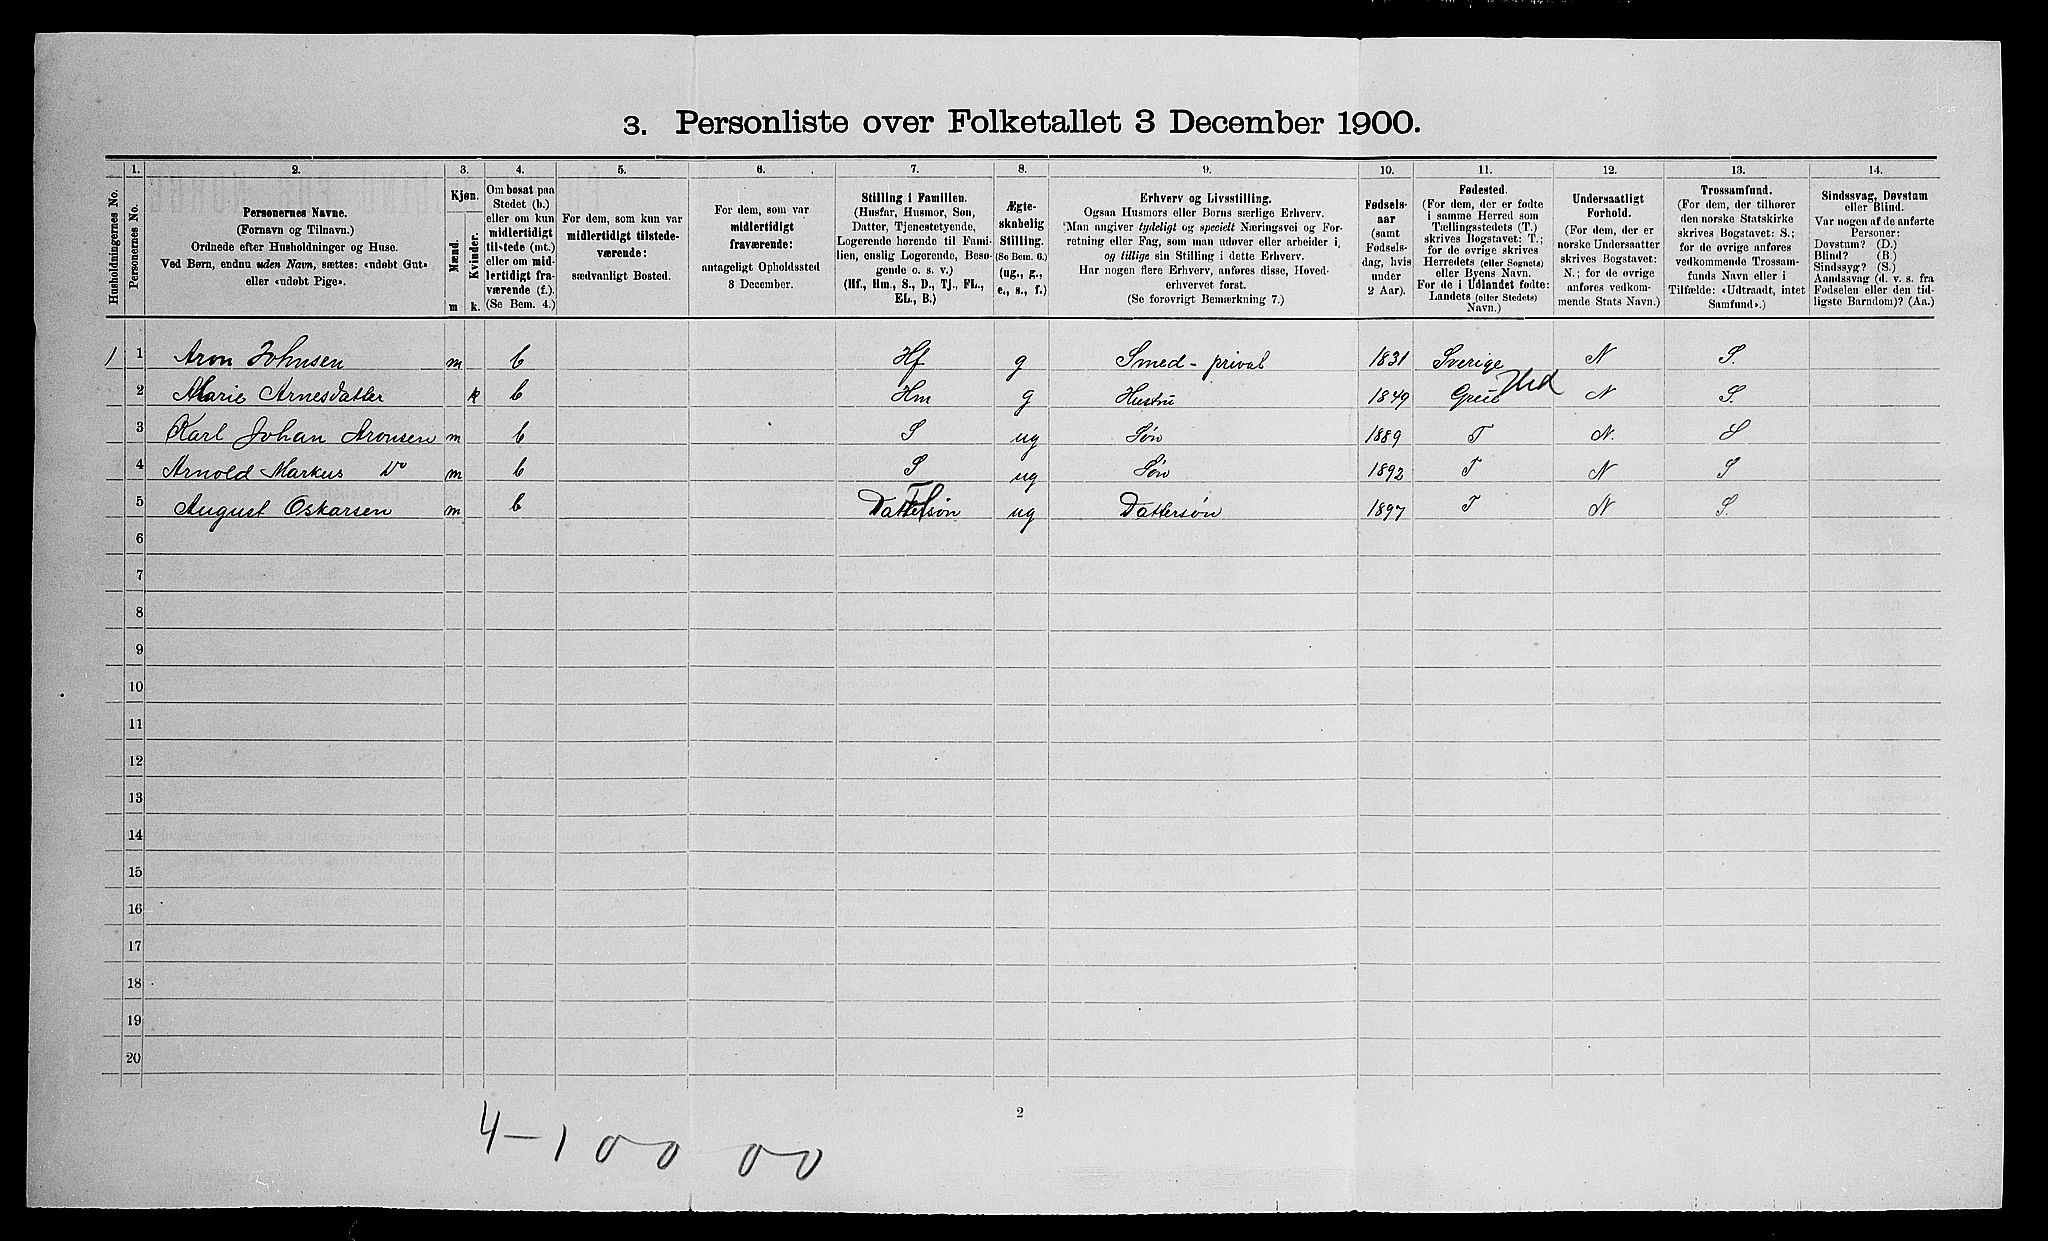 3. Personliste over Folketallet 3 December 1900.
1. 2. 3. 4. 5. 6. 7. 8. 9. 10. 11. 12. 13. 14.
Husholdningernes No.
Personernes No.
Personernes Navne.
(Fornavn og Tilnavn.)
Ordnede efter Husholdninger og Huse.
Ved Børn, endnu uden Navn, sættes: «udøbt Gut»
eller «udøbt Pige».
Kjøn.
Mænd.
Kvinder.
m k.
Om bosat paa
Stedet (b.)
eller om kun
midlertidigt
tilstede (mt.)
eller om mid-
lertidigt fra-
værende (f.).
(Se Bem. 4.)
For dem, som kun var
midlertidigt tilstede-
værende:
sædvanligt Bosted.
For dem, som var
midlertidigt
fraværende:
antageligt Opholdssted
3 December.
Stilling i Familien.
(Husfar, Husmor, Søn,
Datter, Tjenestetyende,
Logerende hørende til Fami-
lien, enslig Logerende, Besø-
gende o. s. v.)
(Hf., Hm., S., D., Tj., FL.,
EL., B.)
Ægte-
skabelig
Stilling.
(Se Bem. 6.)
(ug., g.,
e., s., f.)
Erhverv og Livsstilling.
Ogsaa Husmors eller Børns særlige Erhverv.
Man angiver tydeligt og specielt Næringsvei og For-
retning eller Fag, som man udøver eller arbeider i,
og tillige sin Stilling i dette Erhverv.
Har nogen flere Erhverv, anføres disse, Hoved-
erhvervet først.
(Se forøvrigt Bemærkning 7.)
Fødsels-
aar
(samt
Fødsels-
dag, hvis
under
2 Aar).
Fødested.
(For dem, der er fødte
i samme Herred som
Tællingsstedets (T.)
skrives Bogstavet: T.;
for de øvrige skrives
Herredets (eller Sognets)
eller Byens Navn.
For de i Udlandet fødte:
Landets (eller Stedets)
Navn.)
Undersaatligt
Forhold.
(For dem, der er
norske Undersaatter
skrives Bogstavet:
N.; for de øvrige
anføres vedkom-
mende Stats Navn.)
Trossamfund.
(For dem, der tilhører
den norske Statskirke
skrives Bogstavet: S.;
for de øvrige anføres
vedkommende Trossam-
funds Navn eller i
Tilfælde: «Udtraadt, intet
Samfund».)
Sindssvag, Døvstum
eller Blind.
Var nogen af de anførte
Personer:
Døvstum? (D.)
Blind? (B.)
Sindssyg? (S.)
Aandssvag (d. v. s. fra
Fødselen eller den tid-
ligste Barndom)? (Aa.)
1 1 Aron Johnsen m b Hf g Smed - privat 1831 Sverige N S.
2 Marie Arnesdatter k b Hm g Hustru 1849 Grue Hed N S.
3 Karl Johan Aronsen m b S ug Søn 1889 T N. S
4 Arnold Markus Do m b S ug Søn 1892 T N S
5 August Oskarsen m b Dattersøn ug Dattersøn 1897 T N S.
6
7
8
9
10
11
12
13
14
15
16
17
18
19
20
2
4 - 1 0 0 0 0